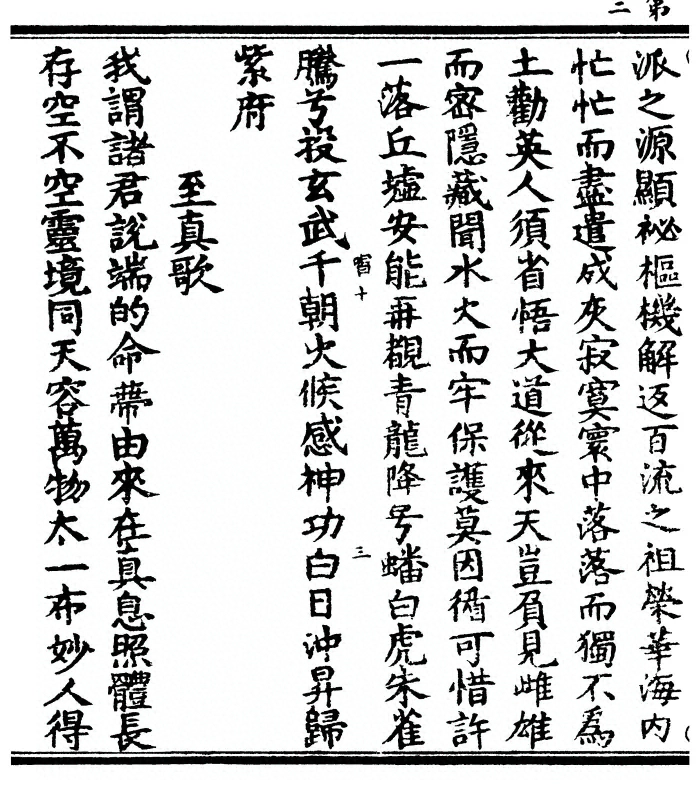 第二
派之源顯祕樞機解返百流之祖榮華海内
忙忙而盡遣成灰寂寞寰中落落而獨不爲
土勸英人須省悟大道從來天豈負見雌雄
而密隱藏聞水火而牢保護莫因循可惜許
一落丘墟安能再覩青龍降兮蟠白虎朱雀
宿十
三
騰兮投玄武千朝火候感神功白日沖昇歸
紫府
至真歌
我謂諸君說端的命蔕由來在真息照體長
存空不空靈境同天容萬物太一布妙人得